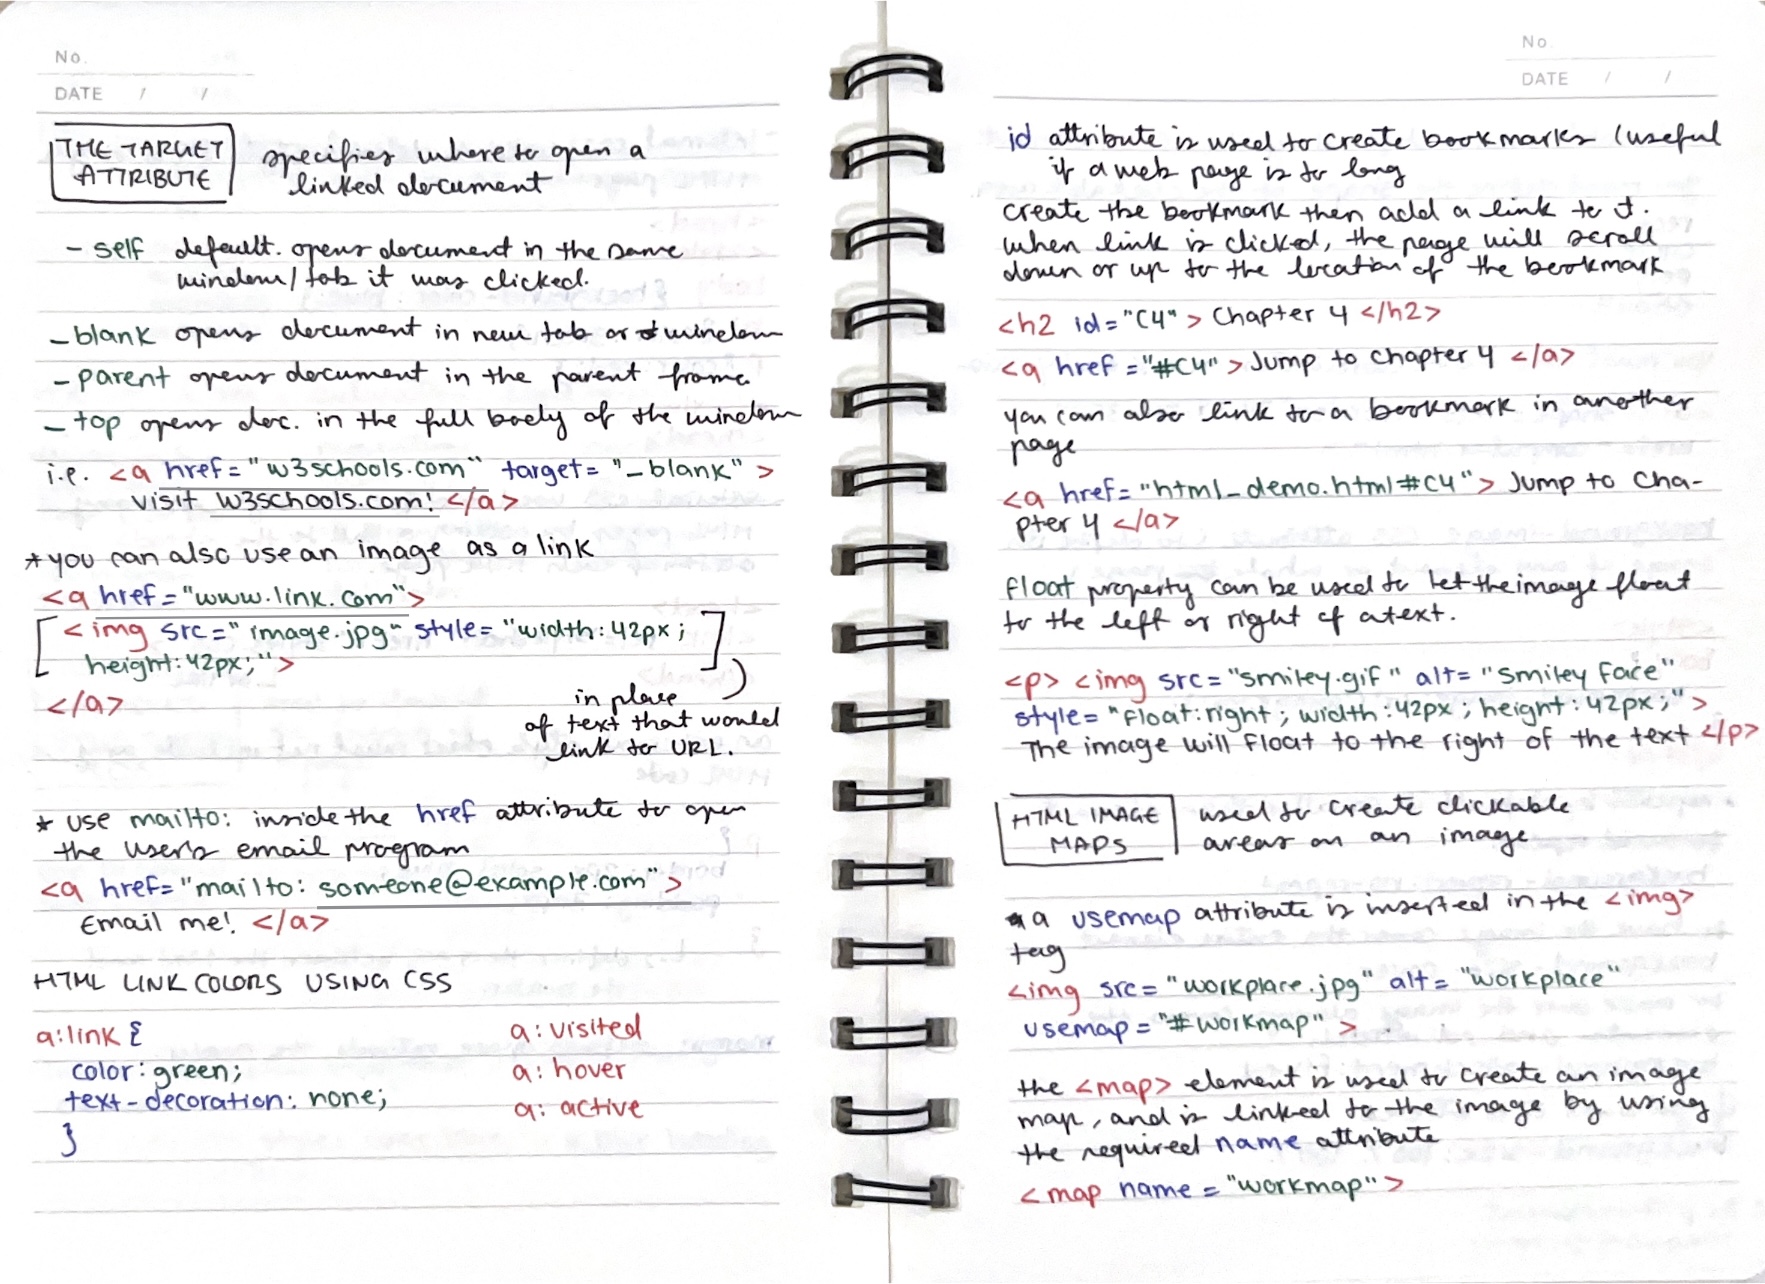 No.
DATE / /
THE TARGET
ATTRIBUTE
specifies where to open a
linked document
- self default. opens document in the same
window/tab it was clicked.
_blank opens document in new tab or window
_parent opens document in the parent frame
_top opens doc. in the full body of the window
i.e. <a href="w3schools.com" target="_blank">
visit w3schools.com! </a>
*you can also use an image as a link
<a href="www.link.com">
<img src="image.jpg" style="width:42px;
height:42px;">
</a>
in place
of text that would
link to URL.
* use mailto: inside the href attribute to open
the user's email program
<a href="mailto: someone@example.com">
Email me! </a>
HTML LINK COLORS USING CSS
a:link {
color: green;
text-decoration: none;
}
a: visited
a: hover
a: active
No.
DATE / /
id attribute is used to create bookmarks (useful
if a web page is to long
create the bookmark then add a link to it.
when link is clicked, the page will scroll
down or up to the location of the bookmark
<h2 id="C4"> Chapter 4 </h2>
<a href="#C4"> Jump to chapter 4 </a>
you can also link to a bookmark in another
page
<a href="html_demo.html#C4"> Jump to Cha-
pter 4 </a>
float property can be used to let the image float
to the left or right of a text.
<p> <img src="smiley.gif" alt="Smiley Face"
style="float:right; width:42px; height:42px;">
The image will float to the right of the text </p>
HTML IMAGE
MAPS
used to create clickable
areas on an image
a usemap attribute is inserted in the <img>
tag
<img src="workplace.jpg" alt="workplace"
usemap="#workmap">
the <map> element is used to create an image
map, and is linked to the image by using
the required name attribute
<map name="workmap">